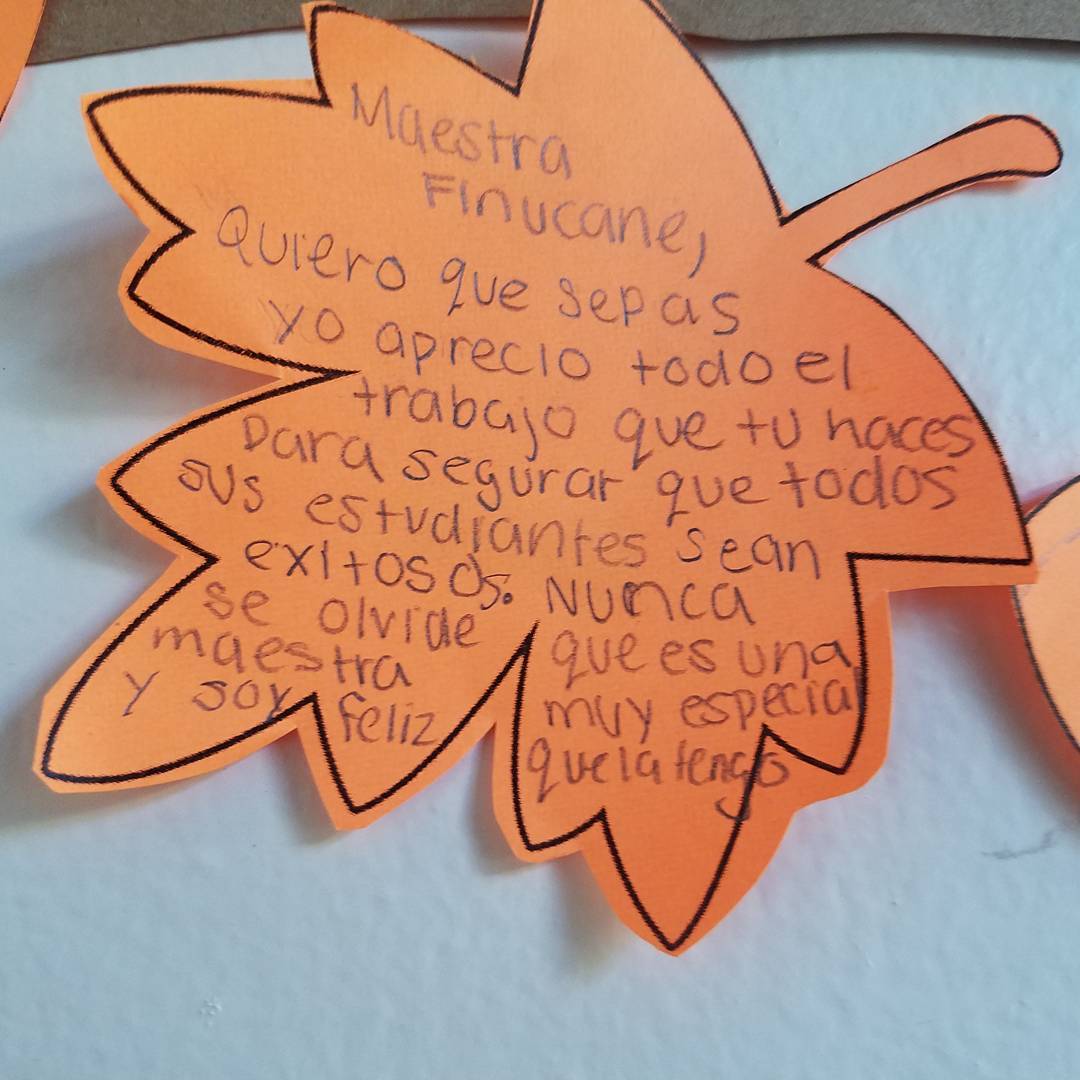 Maestra
Finucane,
Quiero que sepas
yo aprecio todo el
trabajo que tu haces
para segurar que todos
sus estudiantes sean
exitosos. Nunca
se olvide que es una
maestra muy especial
y soy feliz que la tengo